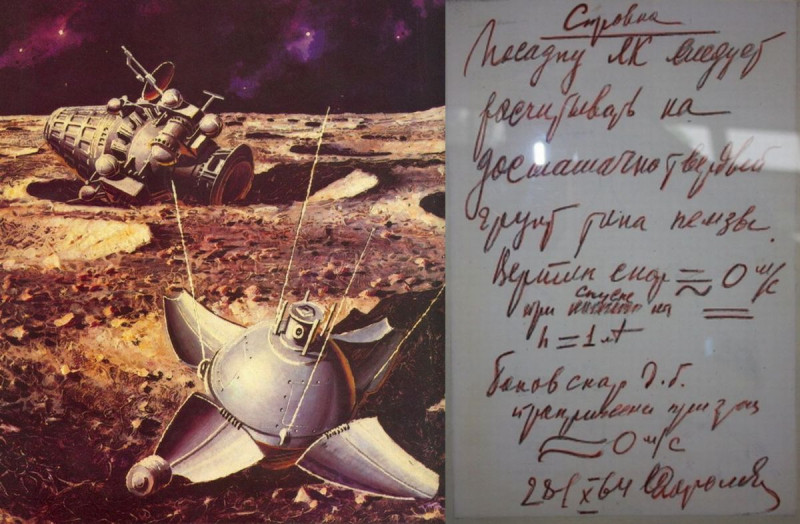 Справка
Посадку ЛК следует
расчитывать на
достаточно твердый
грунт типа пемзы.
Вертик скор ≈ 0 м/с
при спуске на
h = 1 м
Боков скор д.б.
при
≈ 0 м/с
28/X 64 Королев